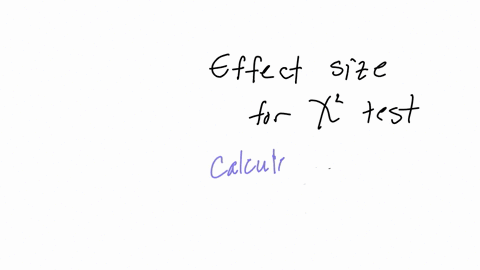 Effect size
for χ² test
Calcul